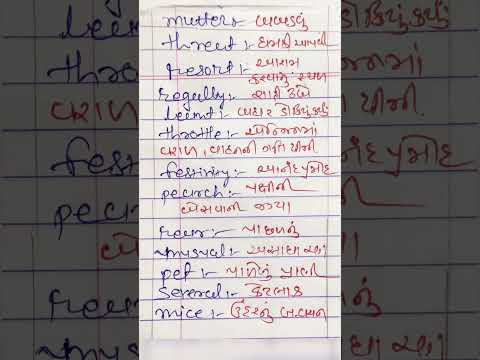 mutter:- બબડવું
threat:- ધમકી આપવી
resort:- આરામ
કરવાનું સ્થળ
regally:- શાહી ઠબે
leant:- બહાર ડોકિયું કર્યું
throttle:- એન્જિનમાં
વરાળ, વાહનની ગતિ ધીમી
festivity:- આનંદપ્રમોદ
pearch:- પક્ષીની
બેસવાની જગ્યા
rear:- પાછળનું
unusual:- અસાધારણ
pet:- પાળેલું પ્રાણી
several:- કેટલાક
mice:- ઉંદરનું બ.વચન